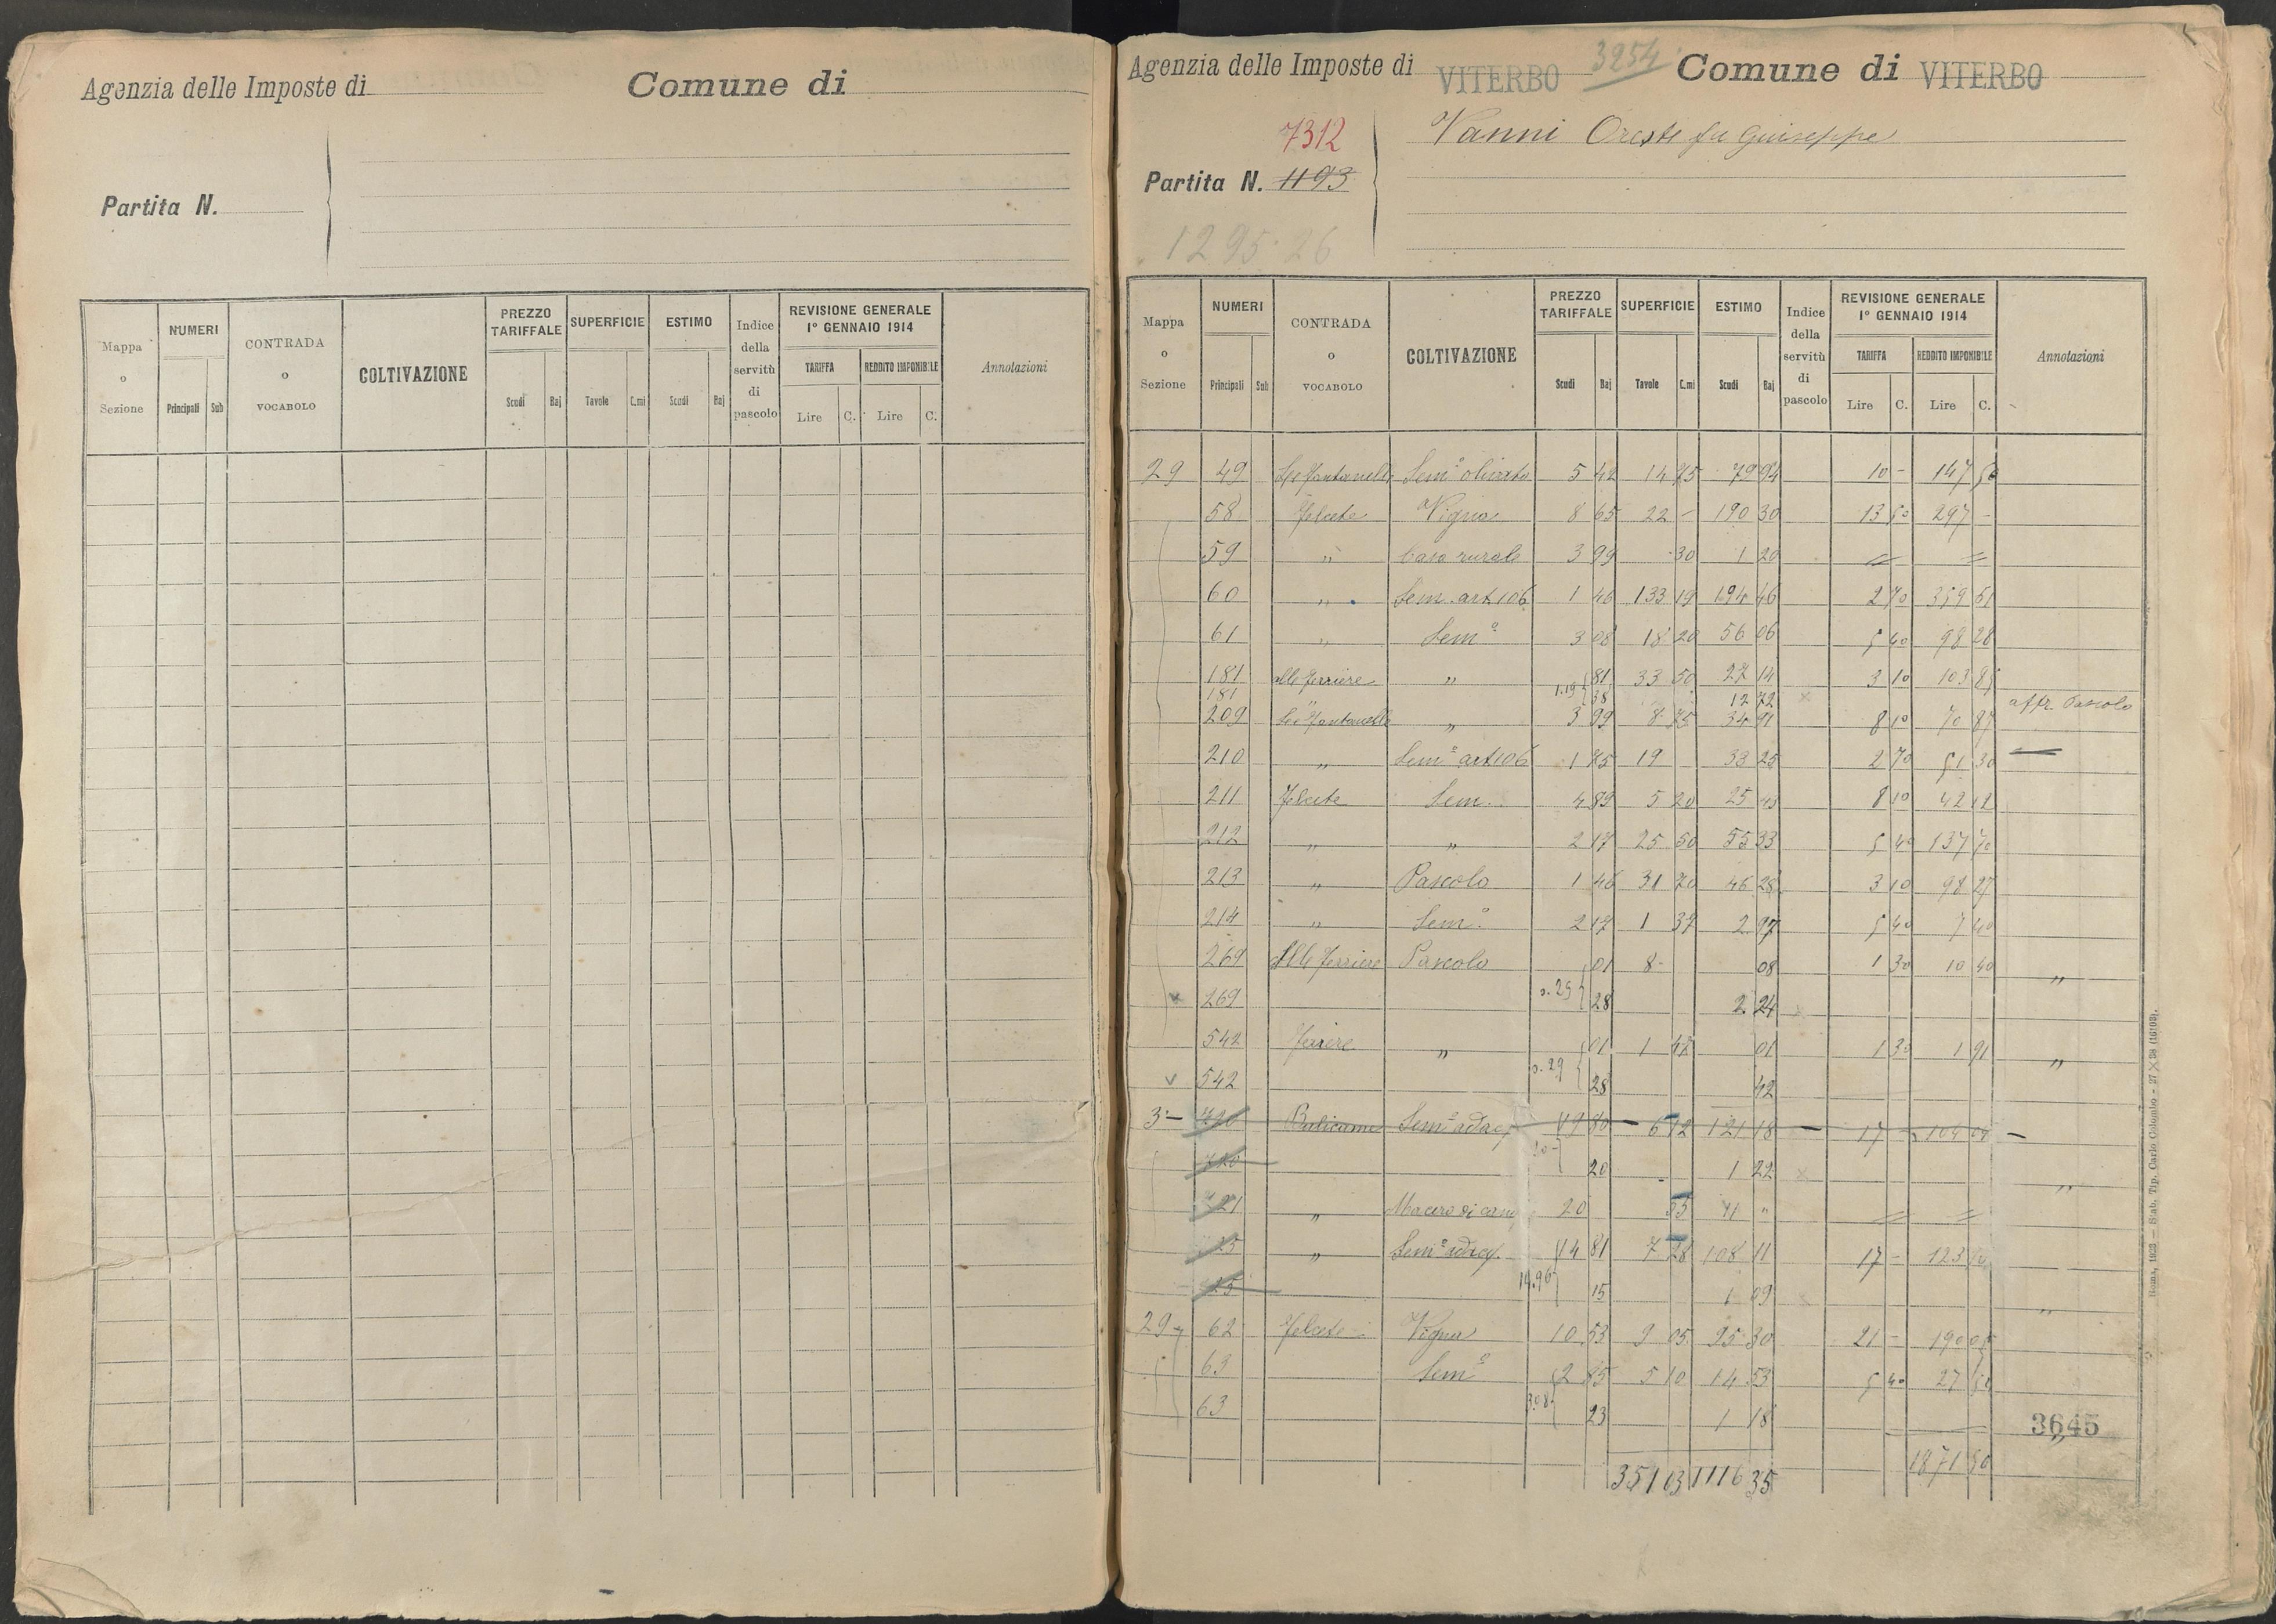 Agenzia delle Imposte di
Comune di
Partita N.
Mappa o Sezione
NUMERI
Principali Sub
CONTRADA o VOCABOLO
COLTIVAZIONE
PREZZO TARIFFALE
Scudi Baj
SUPERFICIE
Tavole C.mi
ESTIMO
Scudi Baj
Indice della servitù di pascolo
REVISIONE GENERALE 1° GENNAIO 1914
TARIFFA REDDITO IMPONIBILE
Lire C. Lire C.
Annotazioni
Agenzia delle Imposte di VITERBO 3254 Comune di VITERBO
7312
Vanni Oreste fu Giuseppe
Partita N. 1193
1295.26
Mappa o Sezione
NUMERI
Principali Sub
CONTRADA o VOCABOLO
COLTIVAZIONE
PREZZO TARIFFALE
Scudi Baj
SUPERFICIE
Tavole C.mi
ESTIMO
Scudi Baj
Indice della servitù di pascolo
REVISIONE GENERALE 1° GENNAIO 1914
TARIFFA REDDITO IMPONIBILE
Lire C. Lire C.
Annotazioni
29 49 Le fontanelle Sem.o olivato 5 42 14 75 79 94 10 - 147 50
58 Felcete Vigna 8 65 22 - 190 30 13 50 297 -
59 " Casa rurale 3 99 30 1 20 = =
60 " Sem. art 106 1 46 133 19 194 46 2 70 359 61
61 " Sem.o 3 08 18 20 56 06 5 40 98 28
181 alle ferriere " 81 33 50 27 14 3 10 103 85
181 1.19 38 12 72 x affr. Pascolo
209 Le fontanelle " 3 99 8 75 34 91 8 10 70 87
210 " Sem.o art 106 1 75 19 - 33 25 2 70 51 30
211 Felcete Sem. 4 89 5 20 25 43 8 10 42 12
212 " " 2 17 25 50 55 33 5 40 137 70
213 " Pascolo 1 46 31 70 46 28 3 10 98 27
214 " Sem.o 2 17 1 37 2 97 5 40 7 40
269 Alle ferriere Pascolo 01 8 - 08 1 30 10 40 "
269 0.29 28 2 24 x
542 " 01 1 47 01 1 30 1 91 "
542 0.29 28 42
3 - Bulicame Sem.o adacq 19 80 6 12 121 18 17 - 104 04
20 1 22 x "
" Macero di can 20 55 11 " = =
" Sem.o adacq. 14 81 7 28 108 11 17 -
14.96 15 1 09 x "
29 62 Felcete Vigna 10 53 9 05 95 30 21 - 190 05
63 Sem.o 2 85 5 10 14 53 5 40 27 54
63 3.08 23 1 18
3645
351 03 1116 35 1871 50
Roma, 1923 — Stab. Tip. Carlo Colombo - 27×38 (16103).